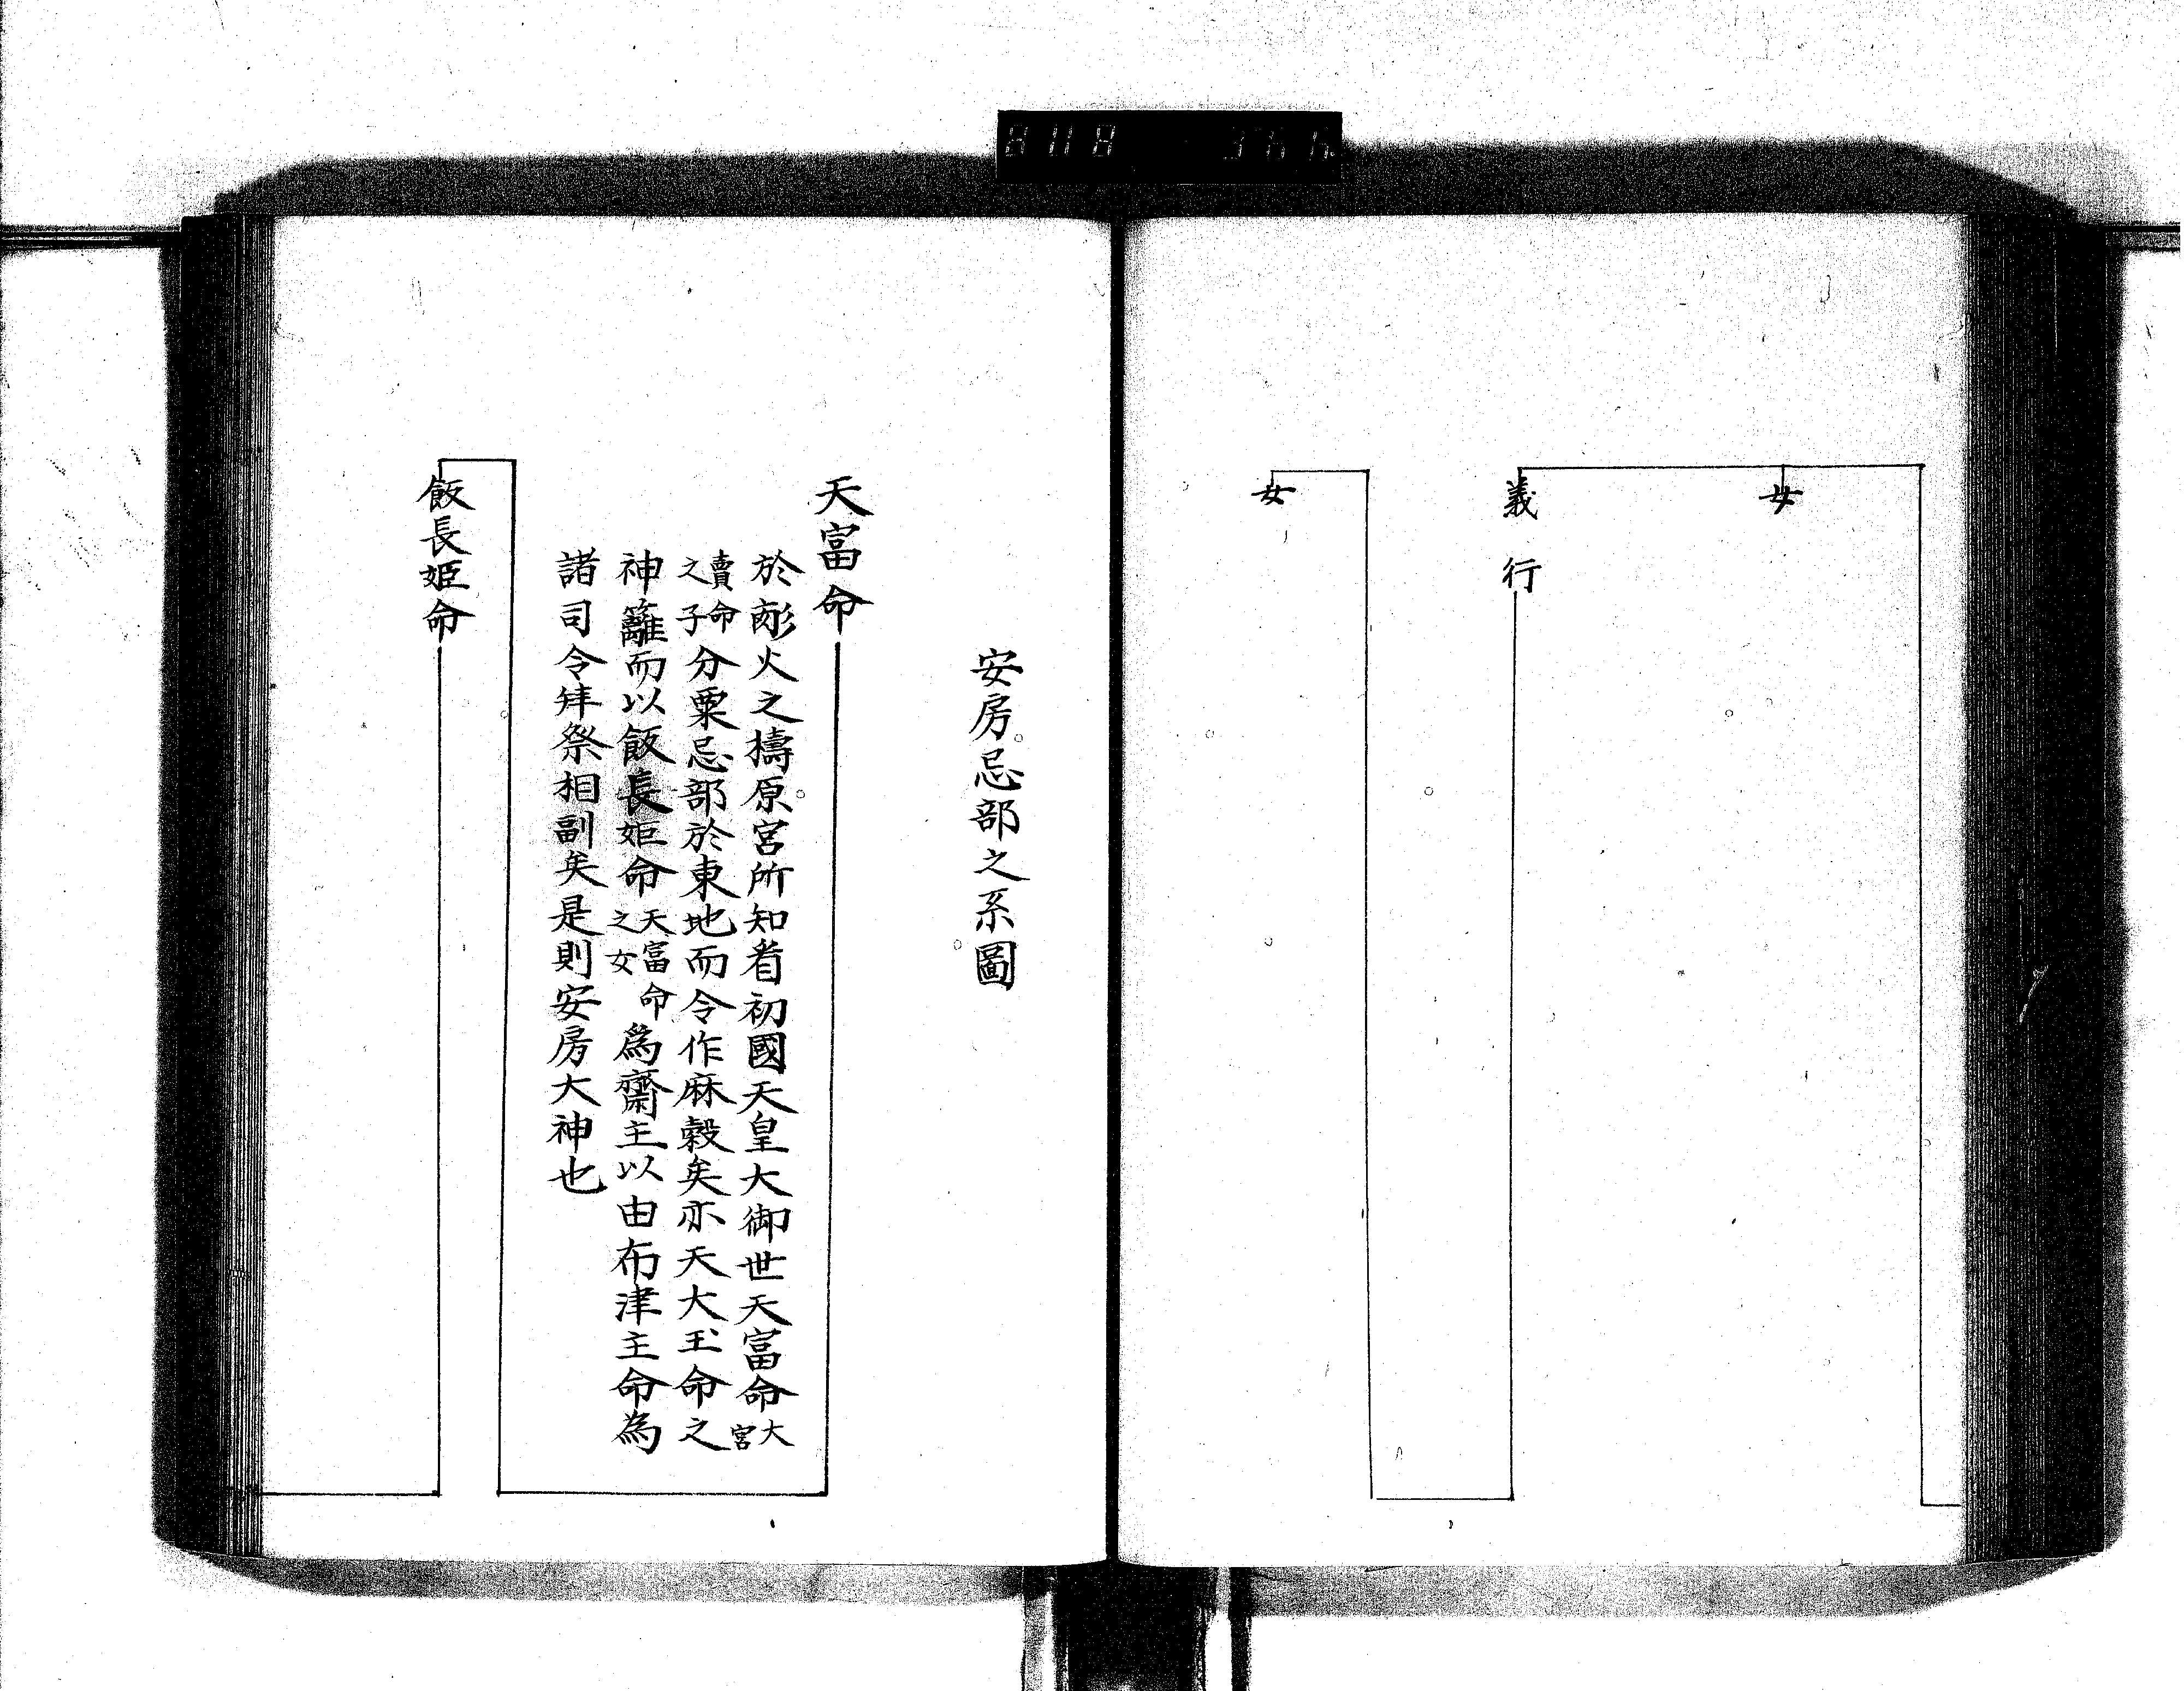 女
義行
女
安房忌部之系圖
天富命
於彫火之檮原宮所知看初國天皇大御世天富命大宮
賣命之子分粟忌部於東地而令作麻穀矣亦天大玉命之
神籬而以飯長姫命天富命之女為齋主以由布津主命為
諸司令拜祭相副矣是則安房大神也
飯長姫命